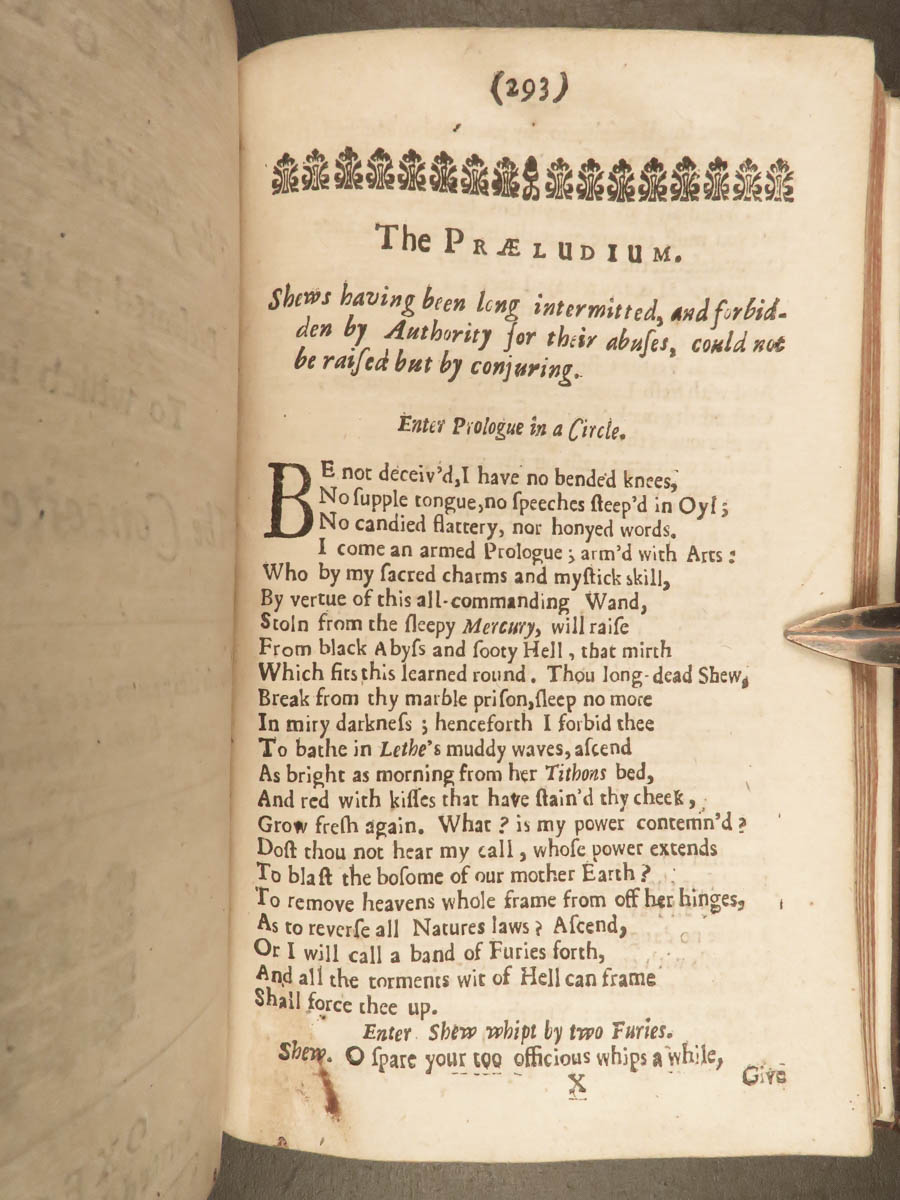 (293)
The PRÆLUDIUM.
Shews having been long intermitted, and forbid-
den by Authority for their abuſes, could not
be raiſed but by conjuring.
Enter Prologue in a Circle.
BE not deceiv'd, I have no bended knees,
No ſupple tongue, no ſpeeches ſteep'd in Oyl;
No candied flattery, nor honyed words.
I come an armed Prologue; arm'd with Arts:
Who by my ſacred charms and myſtick skill,
By vertue of this all-commanding Wand,
Stoln from the ſleepy Mercury, will raiſe
From black Abyſs and ſooty Hell, that mirth
Which fits this learned round. Thou long-dead Shew,
Break from thy marble priſon, ſleep no more
In miry darkneſs; henceforth I forbid thee
To bathe in Lethe's muddy waves, aſcend
As bright as morning from her Tithons bed,
And red with kiſſes that have ſtain'd thy cheek,
Grow freſh again. What? is my power contemn'd?
Doſt thou not hear my call, whoſe power extends
To blaſt the boſome of our mother Earth?
To remove heavens whole frame from off her hinges,
As to reverſe all Natures laws? Aſcend,
Or I will call a band of Furies forth,
And all the torments wit of Hell can frame
Shall force thee up.
Enter Shew whipt by two Furies.
Shew. O ſpare your too officious whips a while,
X
Give